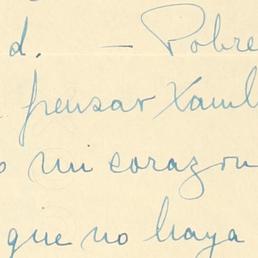 d. — Pobre
pensar
o mi corazon
que no haya